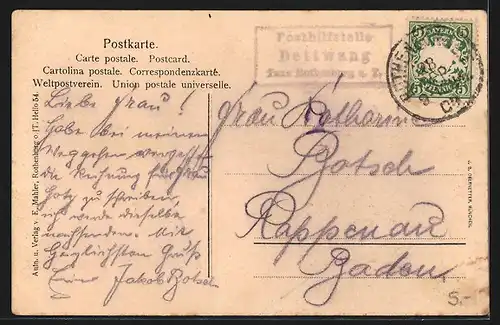 Postkarte.
Carte postale. Postcard.
Cartolina postale. Correspondenzkarté.
Weltpostverein. Union postale universelle.
Posthilfstelle
Dettwang
Taxe Rothenburg o. T.
BAYERN
5 5
PFENNIG
Liebe Frau!
Habe bei meinem
Weggehen vergessen
die Rechnung für Frau
Götz zu schreiben,
ich werde dieselbe
nachsenden. Mit
herzlichsten Gruß
Jakob Botsch
Frau Katharine
Botsch
Rappenau
Baden
Auto. u. Verlag v. E. Mahler, Rothenburg o/T. Helio 54.
5.-